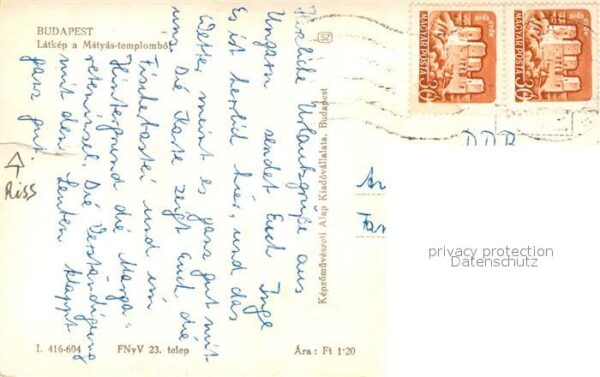 BUDAPEST
Látkép a Mátyás-templomból
Herzliche Urlaubsgrüße aus
Ungarn sendet Euch Inge
Es ist herrlich hier, und das
Wetter meint es ganz gut mit
uns. Die Karte zeigt Euch die
Fischerbastei und im
Hintergrund die Marga-
reteninsel. Die Verständigung
mit den Leuten klappt
ganz gut
Riss
I. 416-604
FNyV 23. telep
Ára: Ft 1·20
Képzőművészeti Alap Kiadóvállalata, Budapest
SZ
MAGYAR POSTA
30
MAGYAR POSTA
30
DDR
An
Fam
privacy protection
Datenschutz